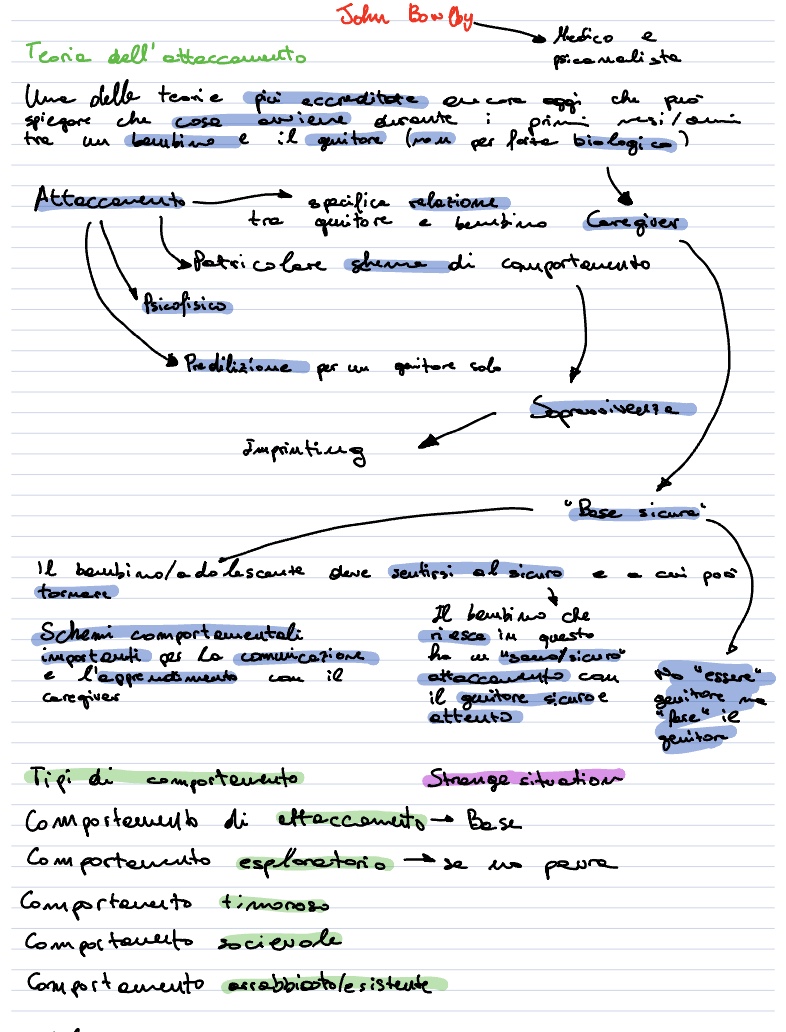 John Bowlby
Medico e
psicoanalista
Teoria dell'attaccamento
Una delle teorie più accreditate ancora oggi che può
spiegare che cosa avviene durante i primi mesi/anni
tra un bambino e il genitore (non per forza biologico)
Attaccamento
specifica relazione
tra genitore e bambino
Caregiver
Patricolare schema di comportamento
Psicofisico
Predilizione per un genitore solo
Sopravvivenza
Imprinting
"Base sicura"
Il bambino/adolescente deve sentirsi al sicuro e a cui può
tornare
Schemi comportamentali
importanti per la comunicazione
e l'apprendimento con il
caregiver
Il bambino che
riesca in questo
ha un "sano/sicuro"
attaccamento con
il genitore sicuro e
attento
No "essere"
genitore ma
"fare" il
genitore
Tipi di comportamento
Strange situation
Comportamento di attaccamento → Base
Comportamento esploratorio → se no paura
Comportamento timoroso
Comportamento socievole
Comportamento arrabbiato/esistente